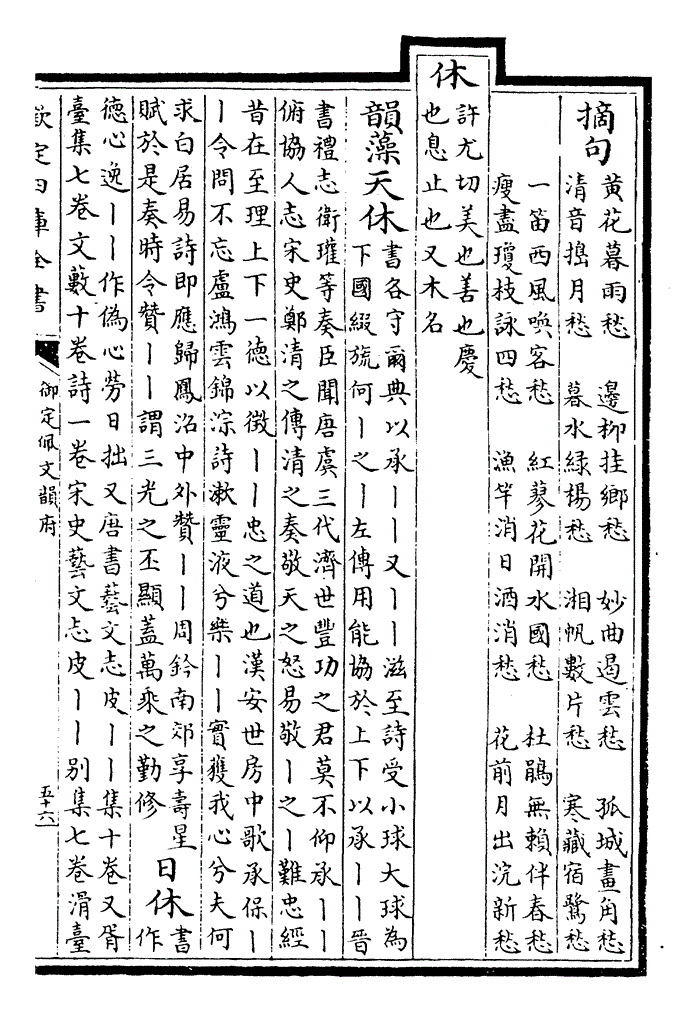 摘句
黄花暮雨愁 邊柳挂鄉愁 妙曲遏雲愁 孤城畫角愁
清音搗月愁 暮水緑楊愁 湘帆數片愁 寒藏宿鷺愁
一笛西風喚客愁 紅蓼花開水國愁 杜鵑無賴伴春愁
瘦盡瓊枝詠四愁 漁竿消日酒消愁 花前月出浣新愁
休
許尤切美也善也慶
也息止也又木名
韻藻天休
書各守爾典以承丨丨又丨丨滋至詩受小球大球為
下國綴旒何丨之丨左傳用能協於上下以承丨丨晉
書禮志衛瓘等奏臣聞唐虞三代濟世豐功之君莫不仰承丨丨
俯協人志宋史鄭清之傳清之奏敬天之怒易敬丨之丨難忠經
昔在至理上下一德以徵丨丨忠之道也漢安世房中歌承保丨
丨令問不忘盧鴻雲錦淙詩漱靈液兮樂丨丨實獲我心兮夫何
求白居易詩即應歸鳳沼中外贊丨丨周鈐南郊享壽星
賦於是奏時令贊丨丨謂三光之丕顯蓋萬乘之勤修
日休
書作
德心逸丨丨作偽心勞日拙又唐書藝文志皮丨丨集十卷又胥
臺集七卷文藪十卷詩一卷宋史藝文志皮丨丨别集七卷滑臺
欽定四庫全書
御定佩文韻府
五十六